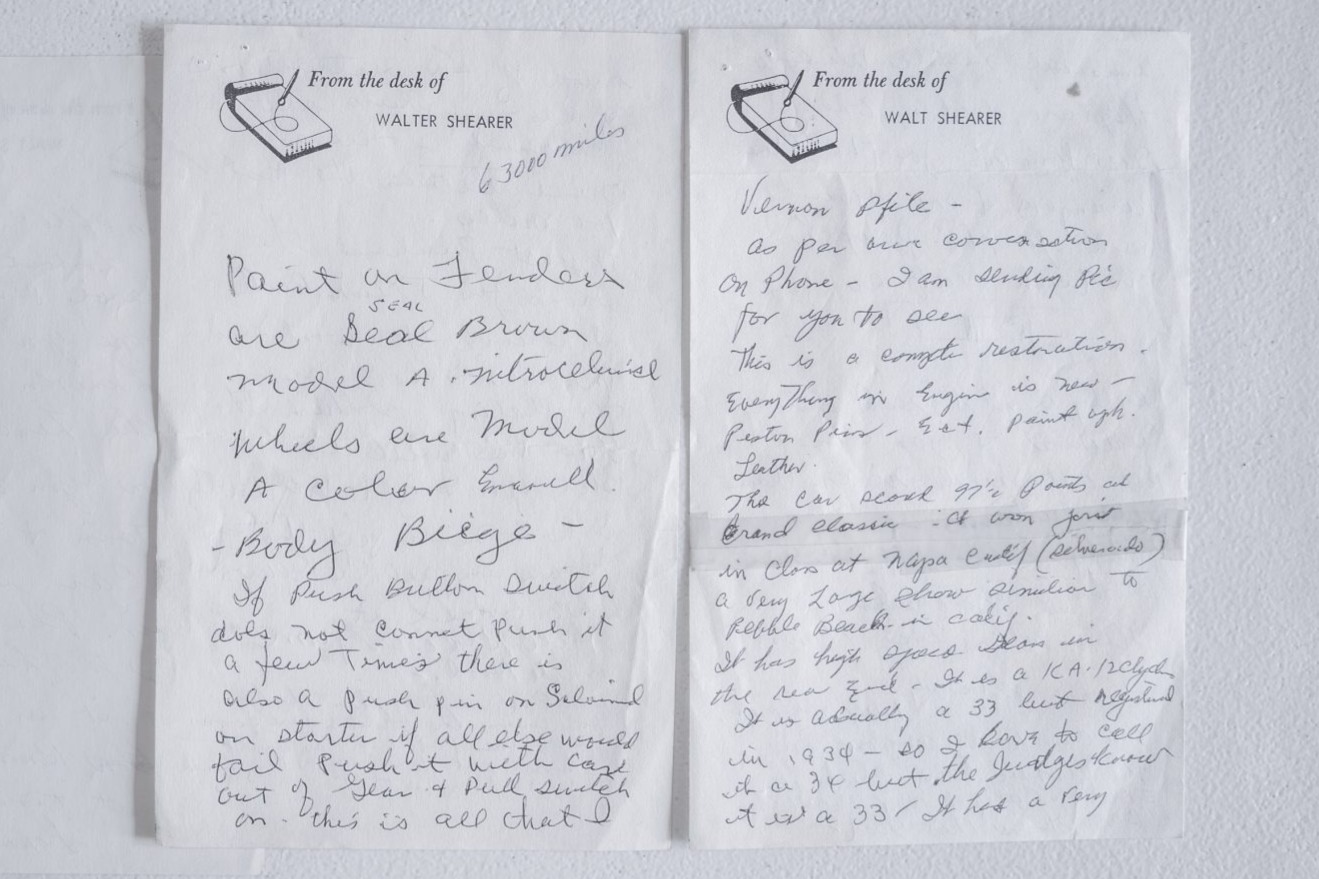 From the desk of
WALTER SHEARER
63000 miles
Paint on Fenders
SEAL
are Seal Brown
Model A
Wheels are Model
A Color
- Body Biege -
If Push Button Switch
does not Connet push it
a few Times there is
also a push pin on
on starter if all else would
fail Push it with Car
out of Gear & Pull switch
on. this is all that I
From the desk of
WALT SHEARER
Vernon Pfile -
as per our conversation
On Phone - I am sending Pic
for you to see
This is a restoration.
Everything in Engine is new -
Piston Pins - Ect. paint uph.
Leather.
The car scored Points at
Grand Classic. It won
in Class at Napa Calif (Silverado)
a Very Large Show similiar to
Pebble Beach in Calif.
It has high speed in
the rear End - It is a KA-12
It is actually a 33 but
in 1934 - so I have to call
it a 34 but the Judges know
it is a 33 / It has a Very